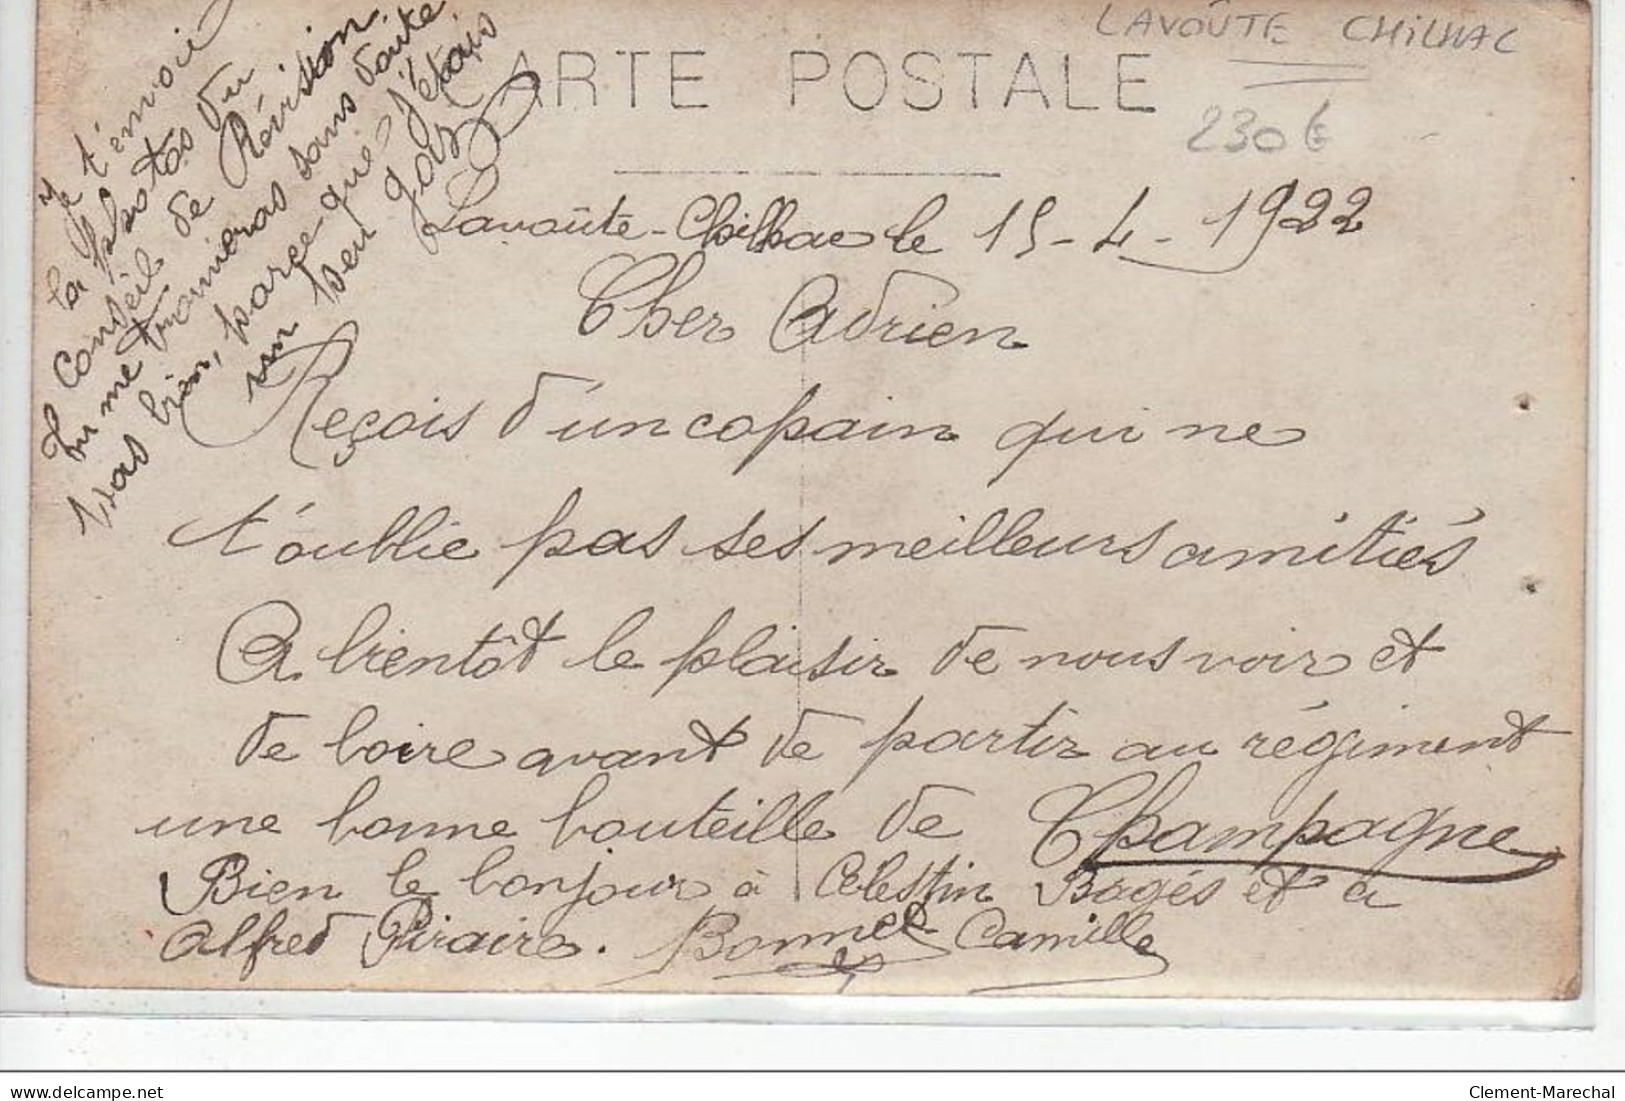 LAVOÛTE CHILHAC
CARTE POSTALE
230€
Je t'envoi
la photos du
Conseil de Révision
tu me trouveras sans doute
pas bien, parce que j'étais
un peu gaz
Lavoûte-Chilhac le 15-4-1922
Cher Adrien
Reçois d'un copain qui ne
t'oublie pas ses meilleurs amitiés
A bientôt le plaisir de nous voir et
de boire avant de partir au régiment
une bonne bouteille de Champagne
Bien le bonjour à Célestin Bagés et a
Alfred Piraire. Bonnet Camille
delcampe.net
Clement-Marechal